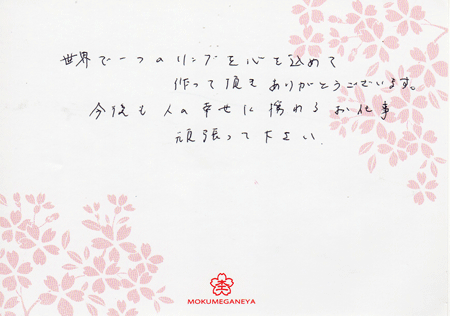 世界で一つのリングを心を込めて
作って頂き ありがとうございます。
今後も 人の幸せに携われるお仕事
頑張って下さい
MOKUMEGANEYA